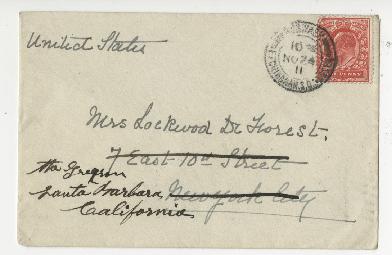 United States
10
NO 24
11
Mrs Lockwood De Forest.
7 East 10th Street
The Gregson
Santa Barbara New York City
California